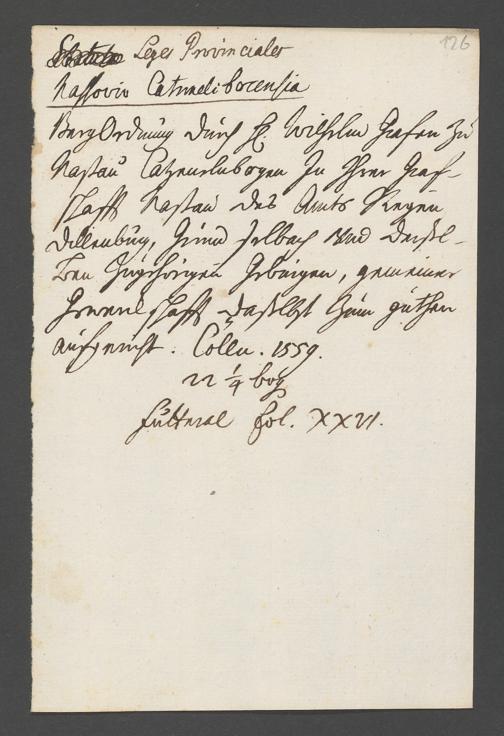 126
Leges Provinciales
Nassovio Catmelibocensia
BergOrdnung durch H. Wilhelm Grafen zu
Nassau Catzenelnbogen In Ihrer Graf-
schafft Nassau des Amts Siegen
Dillenburg, Grund selbach und derosel-
ben Zugehörigen Gebürgen, gemeiner
Gewerckschafft daselbst zum guthen
aufgericht. Cölln. 1559.
22 1/4 bog
Futteral fol. XXVI.